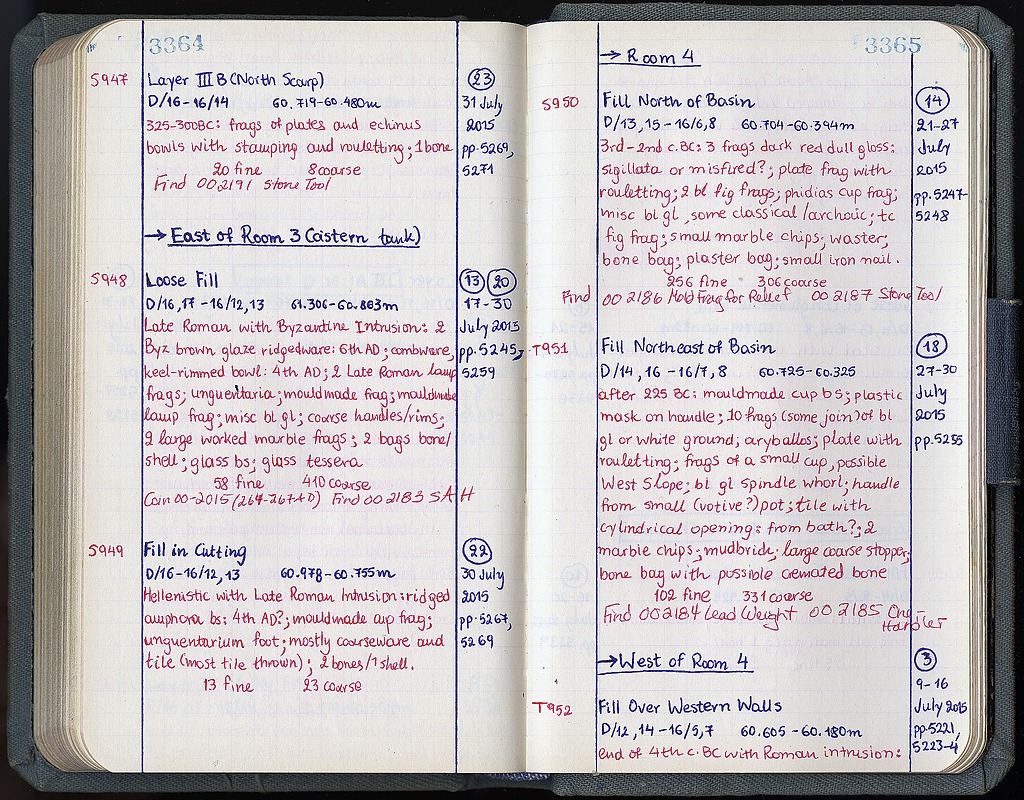 3364
S947 Layer III B (North Scarp) 23
D/16-16/14 60.719-60.480m 31 July
325-300BC: frags of plates and echinus 2015
bowls with stamping and rouletting; 1 bone pp.5269,
20 fine 8 coarse 5271
Find 00 2191 Stone Tool
→ East of Room 3 (cistern tank)
S948 Loose Fill 13 20
D/16,17-16/12,13 61.306-60.803m 17-30
Late Roman with Byzantine Intrusion: 2 July 2015
Byz brown glaze ridgedware: 6th AD; combware, pp.5245,
keel-rimmed bowl: 4th AD; 2 Late Roman lamp 5259
frags; unguentaria; mouldmade frag; mouldmade
lamp frag; misc bl gl; coarse handles/rims;
2 large worked marble frags; 2 bags bone/
shell; glass bs; glass tessera
58 fine 410 coarse
Coin 00-2015 (264-267 AD) Find 00 2183 SAH
S949 Fill in Cutting 22
D/16-16/12,13 60.978-60.755m 30 July
Hellenistic with Late Roman Intrusion: ridged 2015
amphora bs: 4th AD?; mouldmade cup frag; pp.5267,
unguentarium foot; mostly coarseware and 5269
tile (most tile thrown); 2 bones/1 shell.
13 fine 23 coarse
3365
→ Room 4
S950 Fill North of Basin 14
D/13,15-16/6,8 60.704-60.394m 21-27
3rd-2nd c.BC: 3 frags dark red dull gloss: July
sigillata or misfired?; plate frag with 2015
rouletting; 2 bl fig frags; phidias cup frag; pp.5247-
misc bl gl, some classical/archaic; tc 5248
fig frag; small marble chips; waster;
bone bag; plaster bag; small iron nail.
256 fine 306 coarse
Find 00 2186 Mold Frag for Relief 00 2187 Stone Tool
T951 Fill Northeast of Basin 18
D/14,16-16/7,8 60.725-60.325 27-30
after 225 BC: mouldmade cup bs; plastic July
mask on handle; 10 frags (some join) of bl 2015
gl or white ground; aryballos; plate with pp.5255
rouletting; frags of a small cup, possible
West Slope; bl gl spindle whorl; handle
from small (votive?) pot; tile with
cylindrical opening: from bath?; 2
marble chips; mudbrick; large coarse stopper;
bone bag with possible cremated bone
102 fine 331 coarse
Find 00 2184 Lead Weight 00 2185
→ West of Room 4 3
9-16
T952 Fill Over Western Walls July 2015
D/12,14-16/5,7 60.605-60.180m pp.5221,
end of 4th c.BC with Roman intrusion: 5223-4